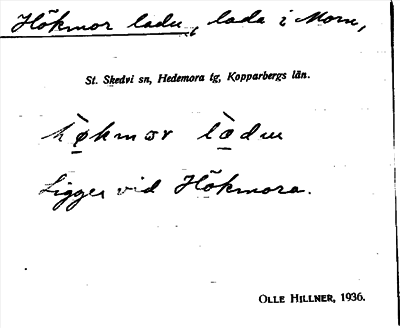 Hökmor ladu, lada i Mora,
St. Skedvi sn, Hedemora tg, Kopparbergs län.
hø̀kmor làdu
Ligger vid Hökmora.
OLLE HILLNER, 1936.